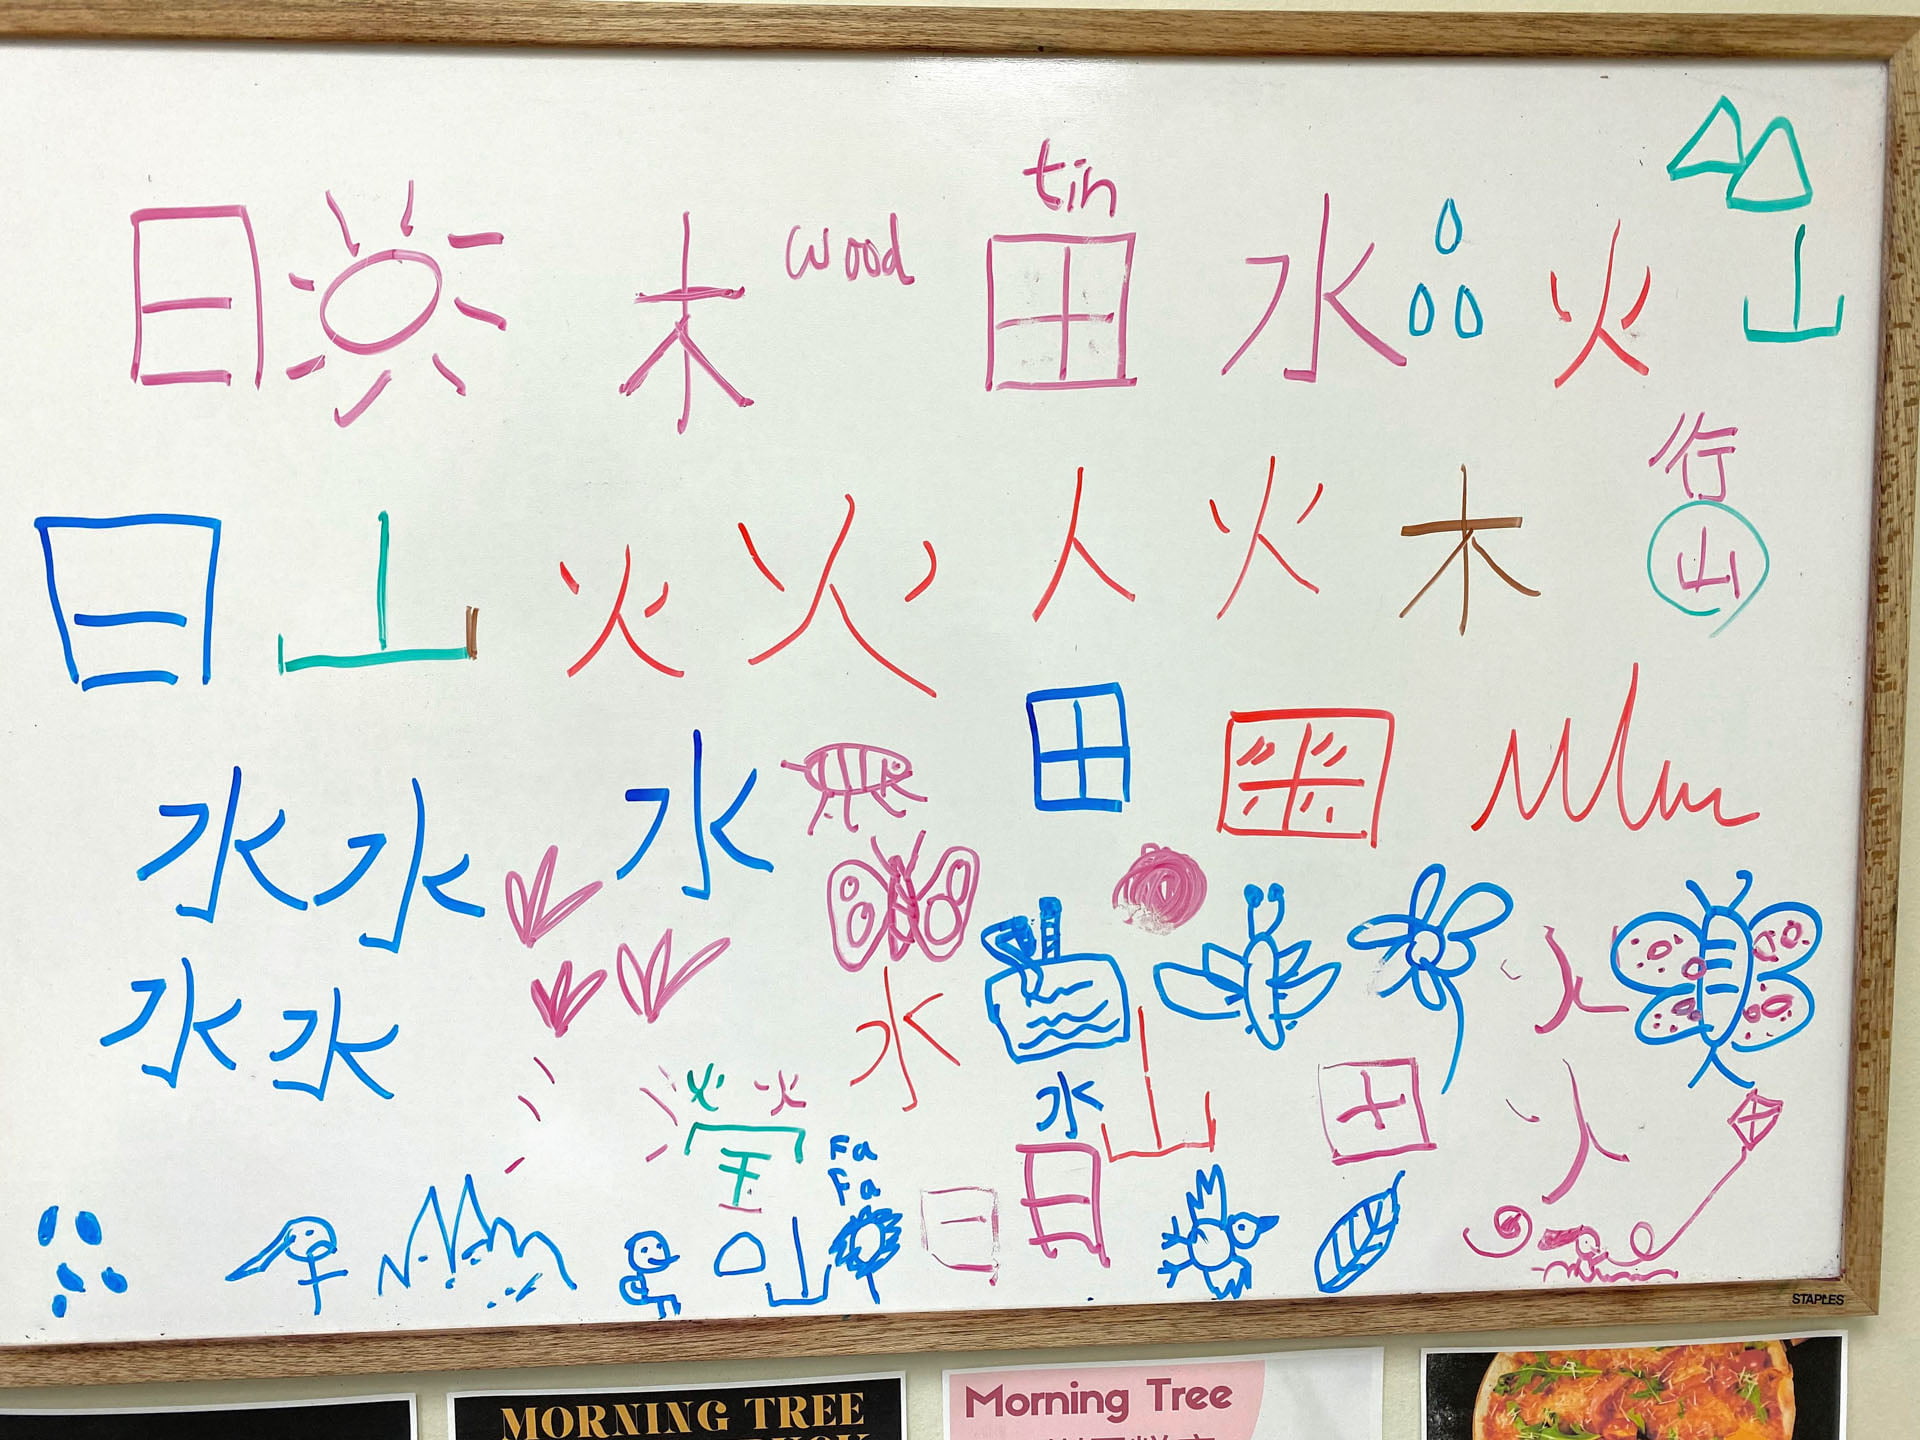 tin
日 木 wood 田 水 火 山
行
日 山 火 火 人 火 木 山
田
水 水 水
水 水 水
火 火
水 山 田 人
Fa
Fa
日 日
山
STAPLES
MORNING TREE
Morning Tree